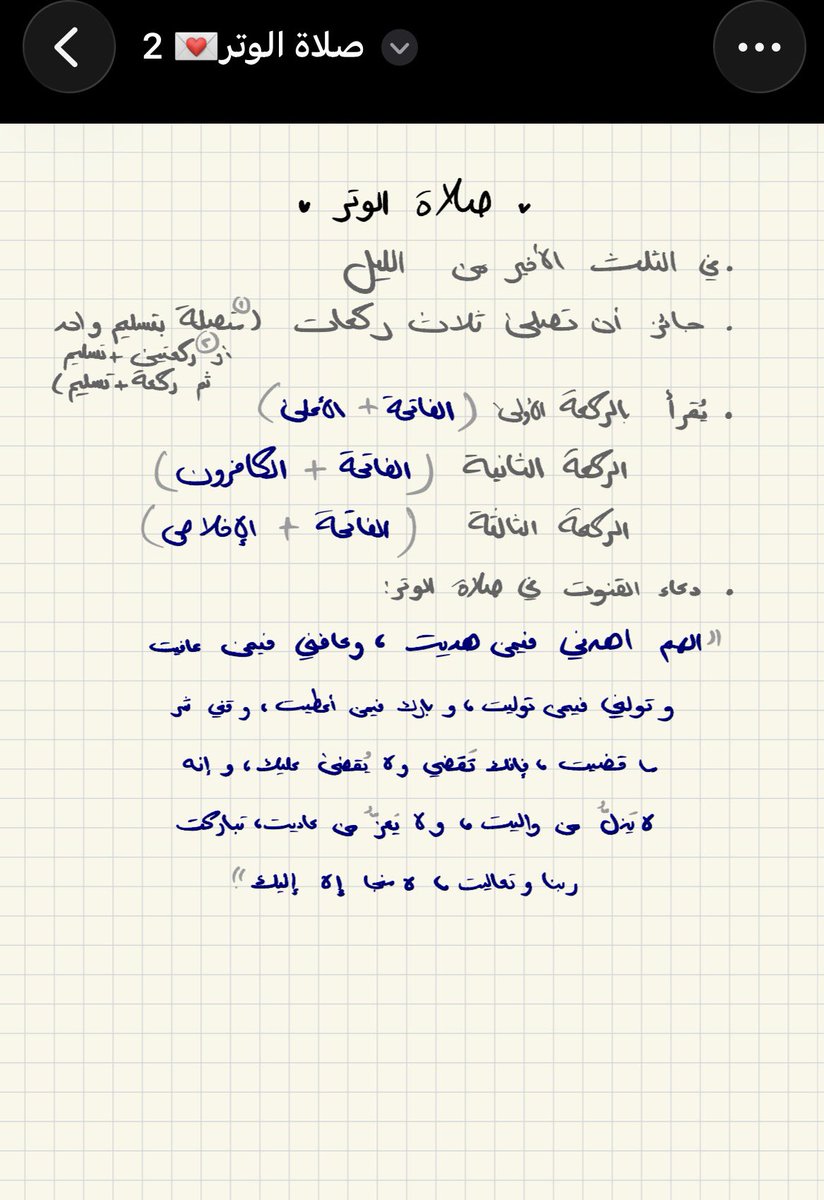 صلاة الوتر💌 2
• صلاة الوتر •
. في الثلث الأخير من الليل
. جائز أن تصلى ثلاث ركعات (متصلة ① بتسليم واحد
أو ② ركعتين + تسليم
ثم ركعة + تسليم)
. يُقرأ بالركعة الأولى (الفاتحة + الأعلى)
الركعة الثانية (الفاتحة + الكافرون)
الركعة الثالثة (الفاتحة + الإخلاص)
. دعاء القنوت في صلاة الوتر:
"الهم اهدني فيمن هديت ، وعافني فيمن عافيت
وتولني فيمن توليت ، وبارك فيمن أعطيت ، وقني شر
ما قضيت ، فإنك تَقضي ولا يُقضى عليك ، وإنه
لا يَذلُّ من واليت ، ولا يَعزُّ من عاديت، تباركت
ربنا وتعاليت ، لا منجا إلا إليك"